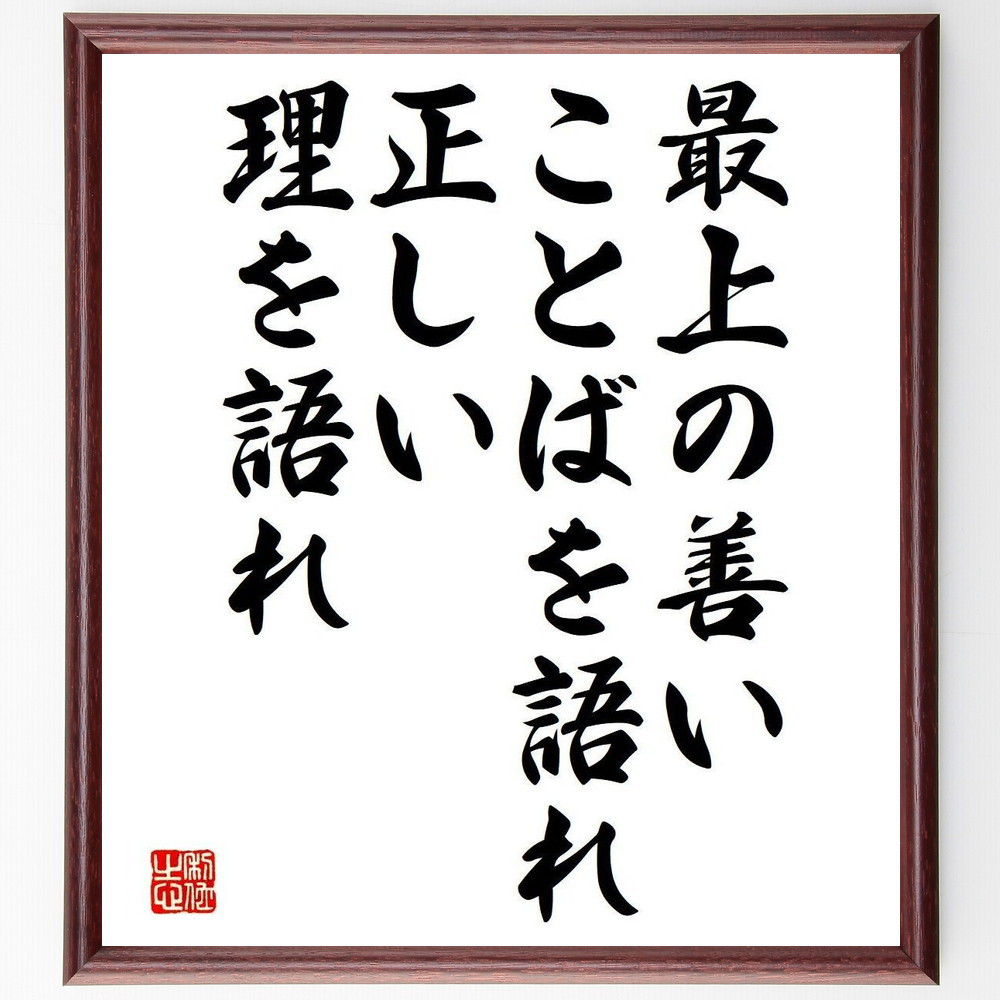 最上の善い
ことばを語れ
正しい
理を語れ